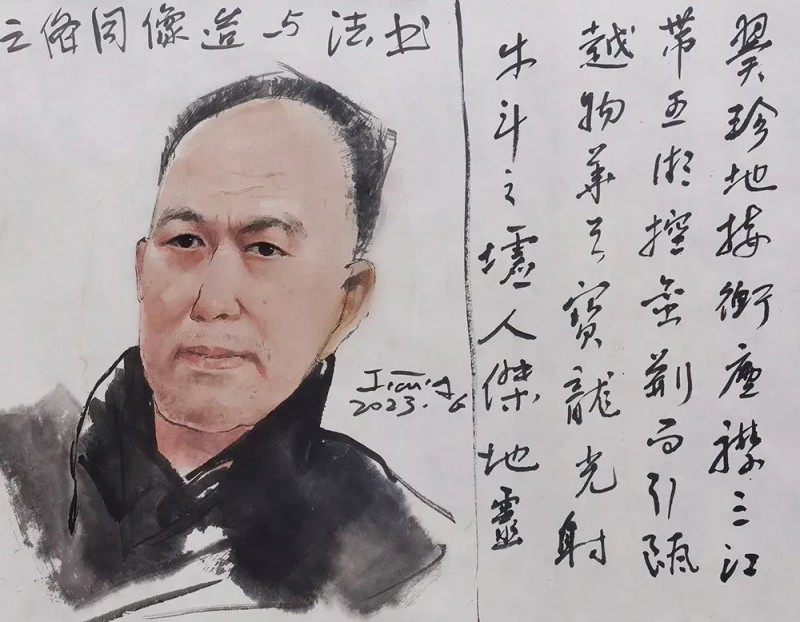 书法与造像同之
翼珍地接衡廬襟三江
带五湖控蛮荆而引瓯
越物華天寶龍光射
牛斗之墟人傑地靈
2023.6